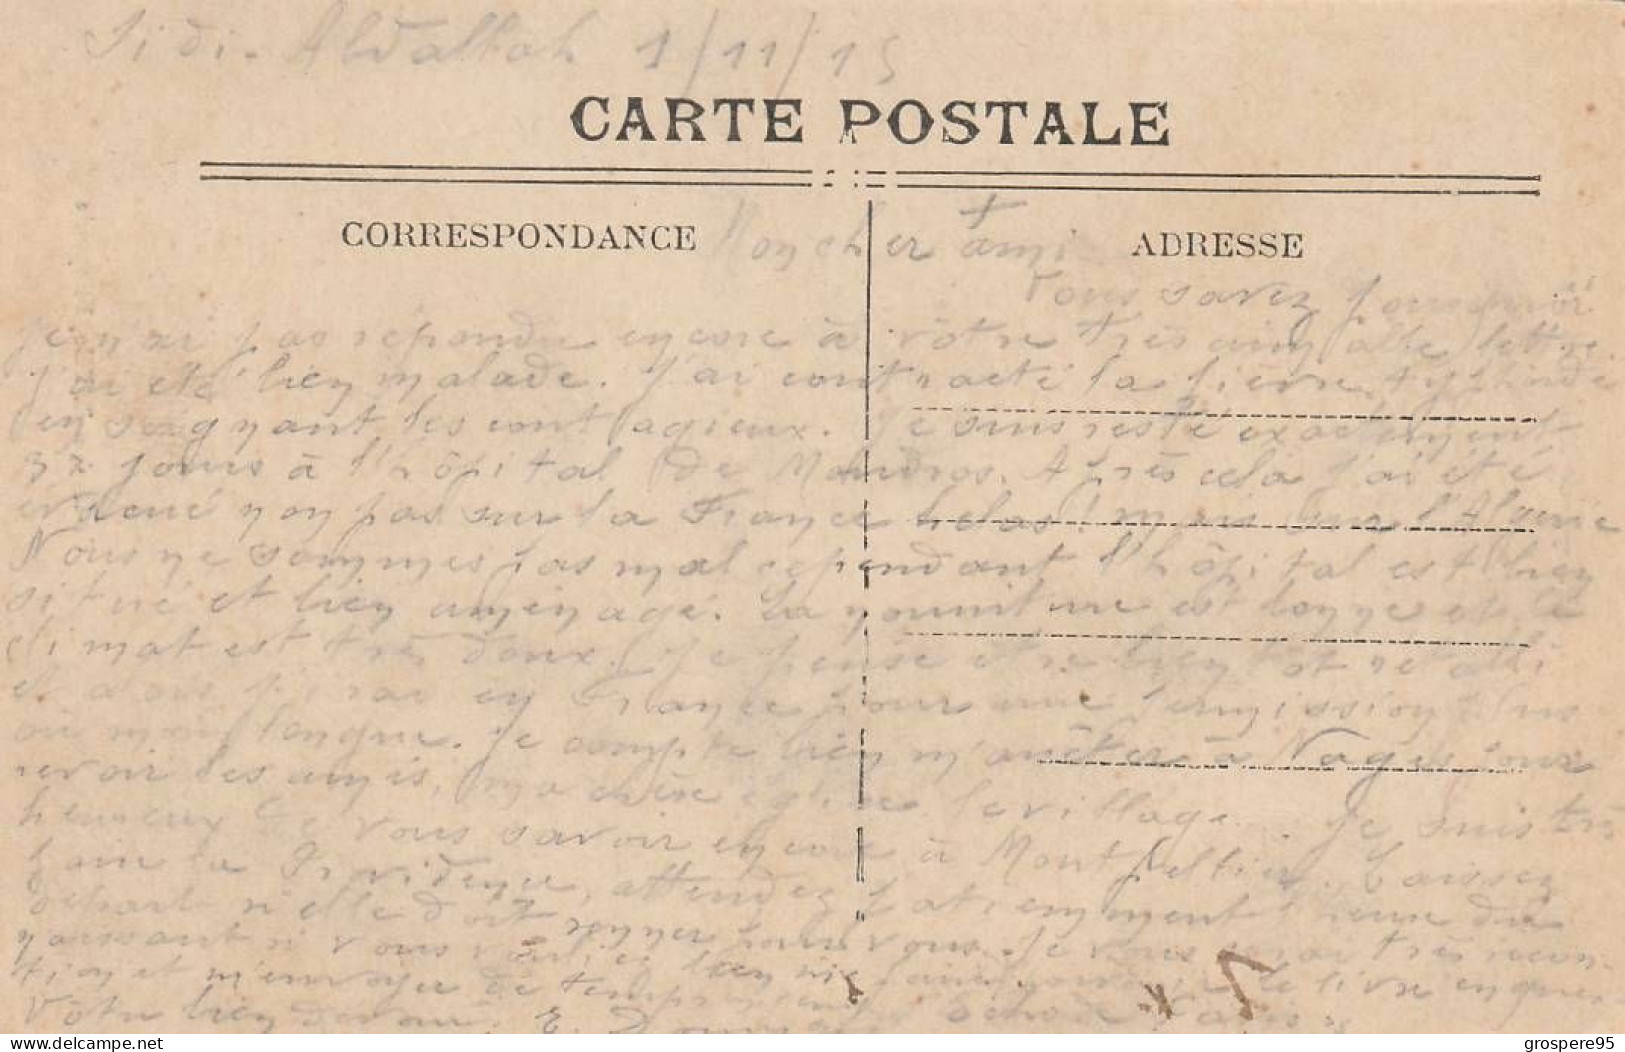 Sidi-Abdallah 1/11/15
CARTE POSTALE
CORRESPONDANCE
ADRESSE
Mon cher ami
Vous savez pourquoi
je n'ai pas répondu encore à vôtre très aimable lettre.
J'ai été bien malade. J'ai contracté la fièvre typhoïde
en soignant les contagieux. Je suis resté exactement
32 jours à l'hôpital de Moudros. Après cela j'ai été
évacué non pas sur la France hélas! mais sur l'Algérie
Nous ne sommes pas mal cependant l'hôpital est bien
situé et bien aménagé. La nourriture est bonne et le
climat est très doux. Je pense être bientôt rétabli
et alors j'irai en France pour une permission plus
ou moins longue. Je compte bien m'arrêter à Nages pour
revoir les amis, ma chère église le village. Je suis très
heureux de vous savoir encore à Montpellier. Laissez
faire la Providence, attendez patiemment l'heure du
départ si elle doit sonner pour vous. Je vous serai très recon-
naissant si vous vouliez bien me le livre en ques-
tion et m'envoyer de temps en
Vôtre bien dévoué. E.
© grospere95
https://www.delcampe.net
grospere95